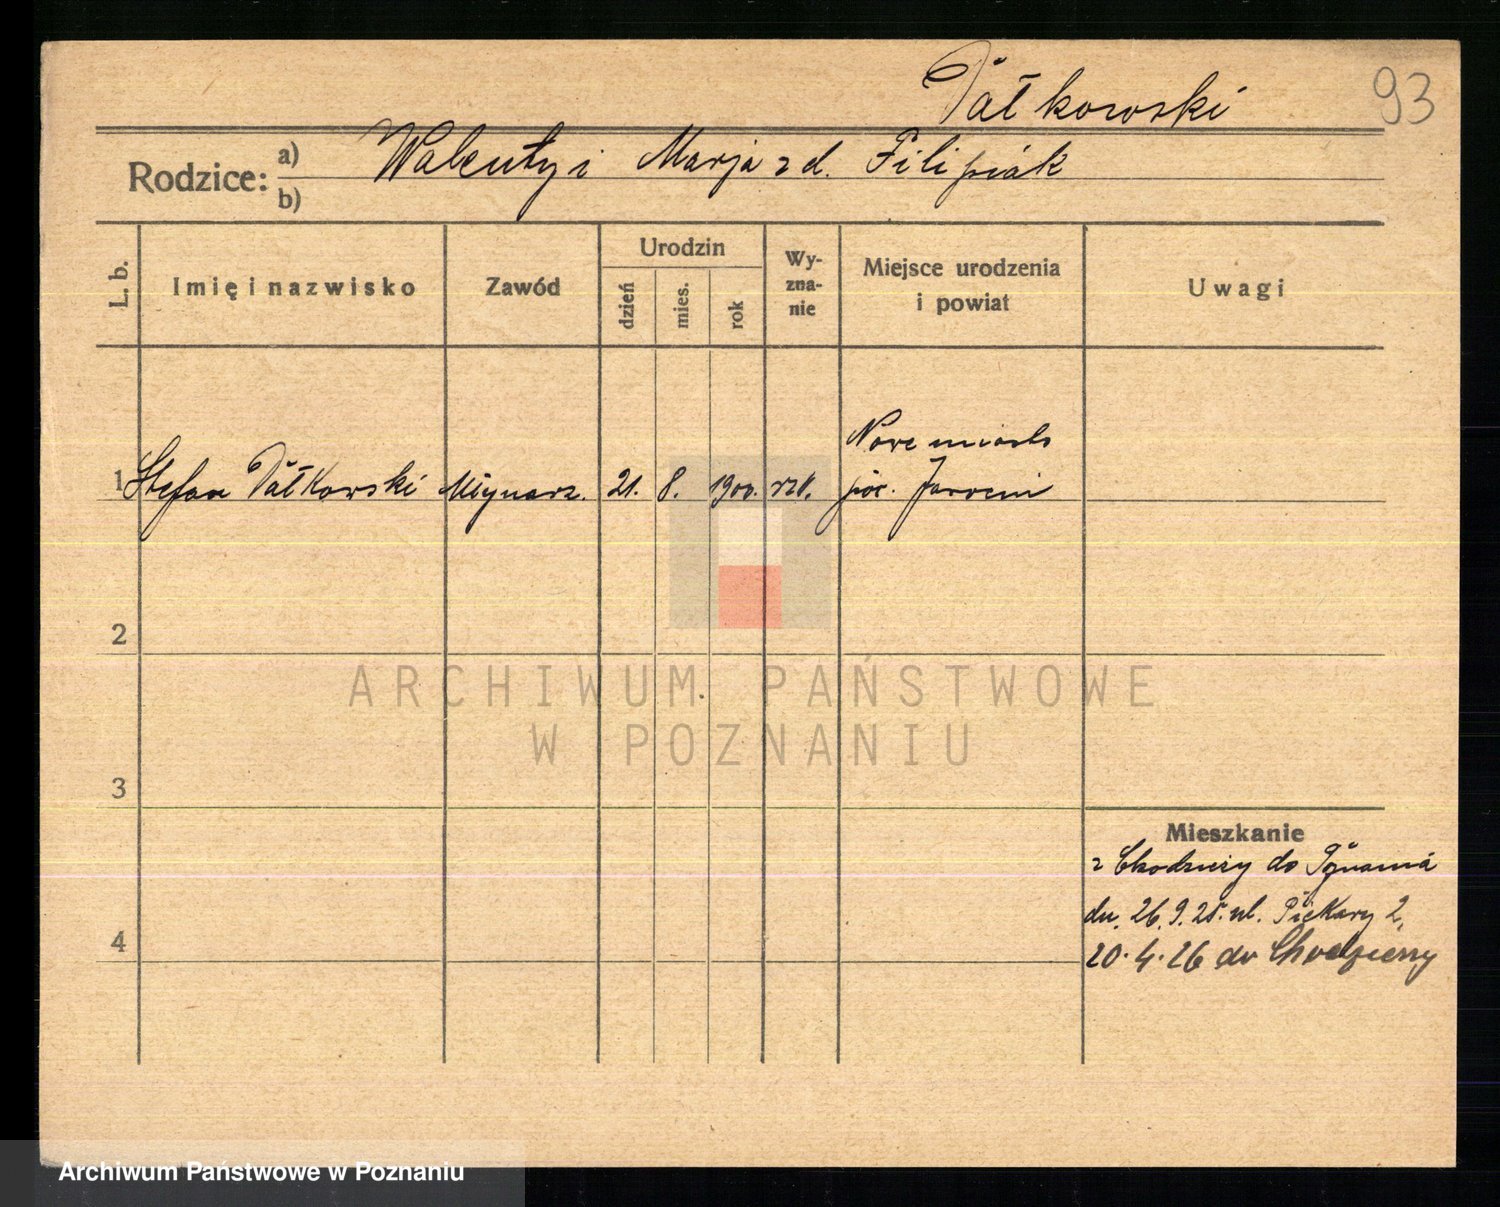 Pałkowski
93
Rodzice: a) Walenty i Marja z d. Filipiak
b)
L. b. Imię i nazwisko Zawód Urodzin dzień mies. rok Wyznanie Miejsce urodzenia i powiat Uwagi
Nowe miasto
1 Stefan Pałkowski Młynarz. 21. 8. 1900. rzk. pow. Jarocin
2
ARCHIWUM PAŃSTWOWE
W POZNANIU
3
Mieszkanie
z Chodzieży do Poznania
dn. 26.9.25. ul. Piekary 2.
4
20.4.26 do Chodzieży
Archiwum Państwowe w Poznaniu